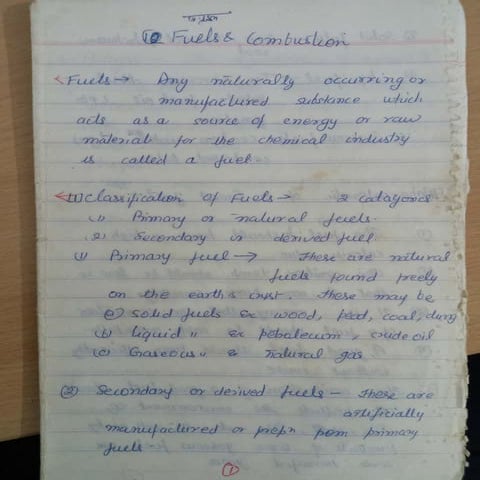 Fuels & Combustion
Fuels → Any naturally occurring or
manufactured substance which
acts as a source of energy or raw
material for the chemical industry
is called a fuel
(1) Classification of Fuels → 2 catagories
(1) Primary or natural fuels.
(2) Secondary or derived fuel
(1) Primary fuel → These are natural
fuels found freely
on the earth's crust. These may be
(a) solid fuels ex wood, peat, coal, dung
(b) liquid " ex petroleum, crude oil
(c) Gaseous " & natural gas
(2) Secondary or derived fuels - These are
artificially
manufactured or prepn from primary
fuels
1